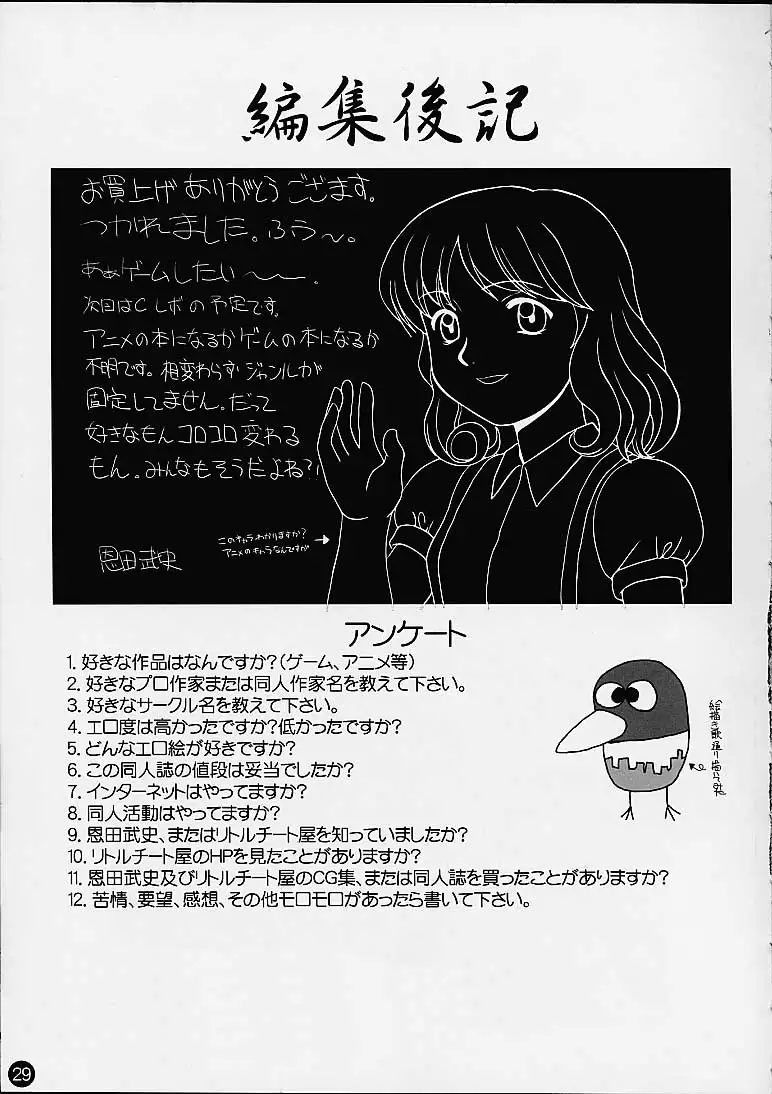 編集後記
お買上げありがとうございます。
つかれました。ふぅ〜。
あぁゲームしたい〜〜。
次回はCレボの予定です。
アニメの本になるかゲームの本になるか
不明です。相変わらずジャンルが
固定してません。だって
好きなもんコロコロ変わる
もん。みんなもそうだよね?!
このキャラわかりますか?
アニメのキャラなんですが
恩田武史
アンケート
1. 好きな作品はなんですか?(ゲーム、アニメ等)
2. 好きなプロ作家または同人作家名を教えて下さい。
3. 好きなサークル名を教えて下さい。
4. エロ度は高かったですか?低かったですか?
5. どんなエロ絵が好きですか?
6. この同人誌の値段は妥当でしたか?
7. インターネットはやってますか?
8. 同人活動はやってますか?
9. 恩田武史、またはリトルチート屋を知っていましたか?
10. リトルチート屋のHPを見たことがありますか?
11. 恩田武史及びリトルチート屋のCG集、または同人誌を買ったことがありますか?
12. 苦情、要望、感想、その他モロモロがあったら書いて下さい。
絵描き歌通り描いた
29